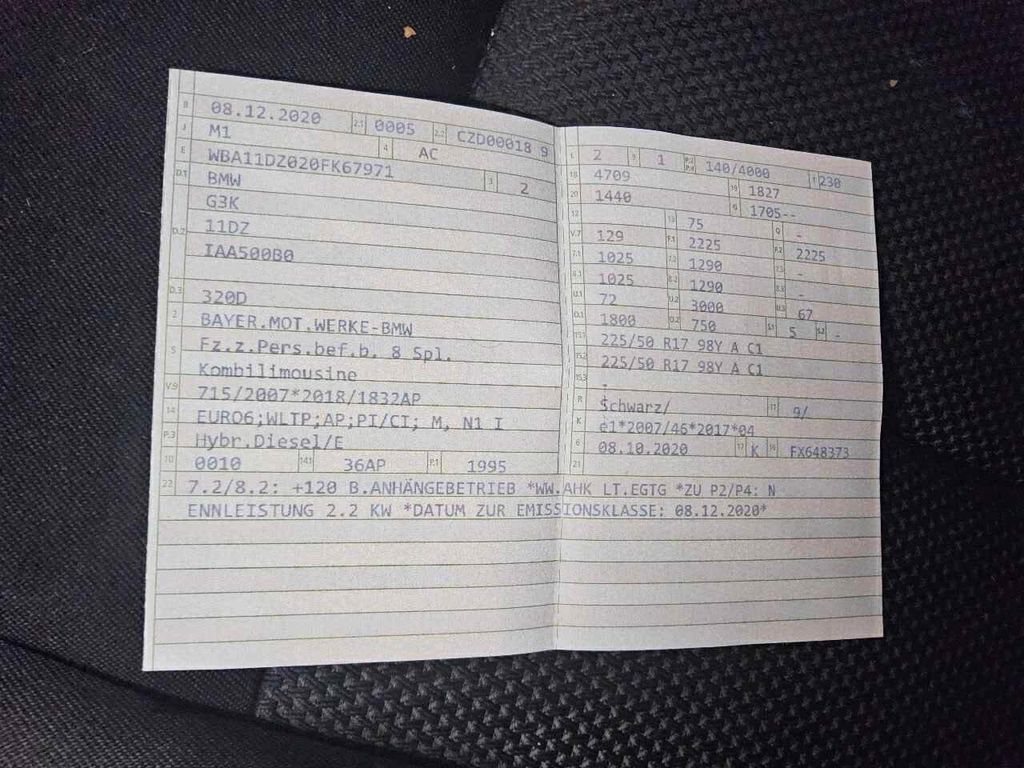 B 08.12.2020 2.1 0005 2.2 CZD00018 9
J M1 4 AC
E WBA11DZ020FK67971 3 2
D.1 BMW
G3K
D.2 11DZ
IAA500B0
D.3 320D
2 BAYER.MOT.WERKE-BMW
5 Fz.z.Pers.bef.b. 8 Spl.
Kombilimousine
V.9 715/2007*2018/1832AP
14 EURO6;WLTP;AP;PI/CI; M, N1 I
P.3 Hybr.Diesel/E
10 0010 14.1 36AP P.1 1995
L 2 9 1 P.2 P.4 140/4000 T 230
18 4709 19 1827
20 1440 G 1705--
12 13 75 Q -
V.7 129 F.1 2225 F.2 2225
7.1 1025 7.2 1290 7.3 -
8.1 1025 8.2 1290 8.3 -
U.1 72 U.2 3000 U.3 67
O.1 1800 O.2 750 S.1 5 S.2 -
15.1 225/50 R17 98Y A C1
15.2 225/50 R17 98Y A C1
15.3 -
R Schwarz/ 11 9/
K e1*2007/46*2017*04
6 08.10.2020 17 K 16 FX648373
21
22 7.2/8.2: +120 B.ANHÄNGEBETRIEB *WW.AHK LT.EGTG *ZU P2/P4: N
ENNLEISTUNG 2.2 KW *DATUM ZUR EMISSIONSKLASSE: 08.12.2020*